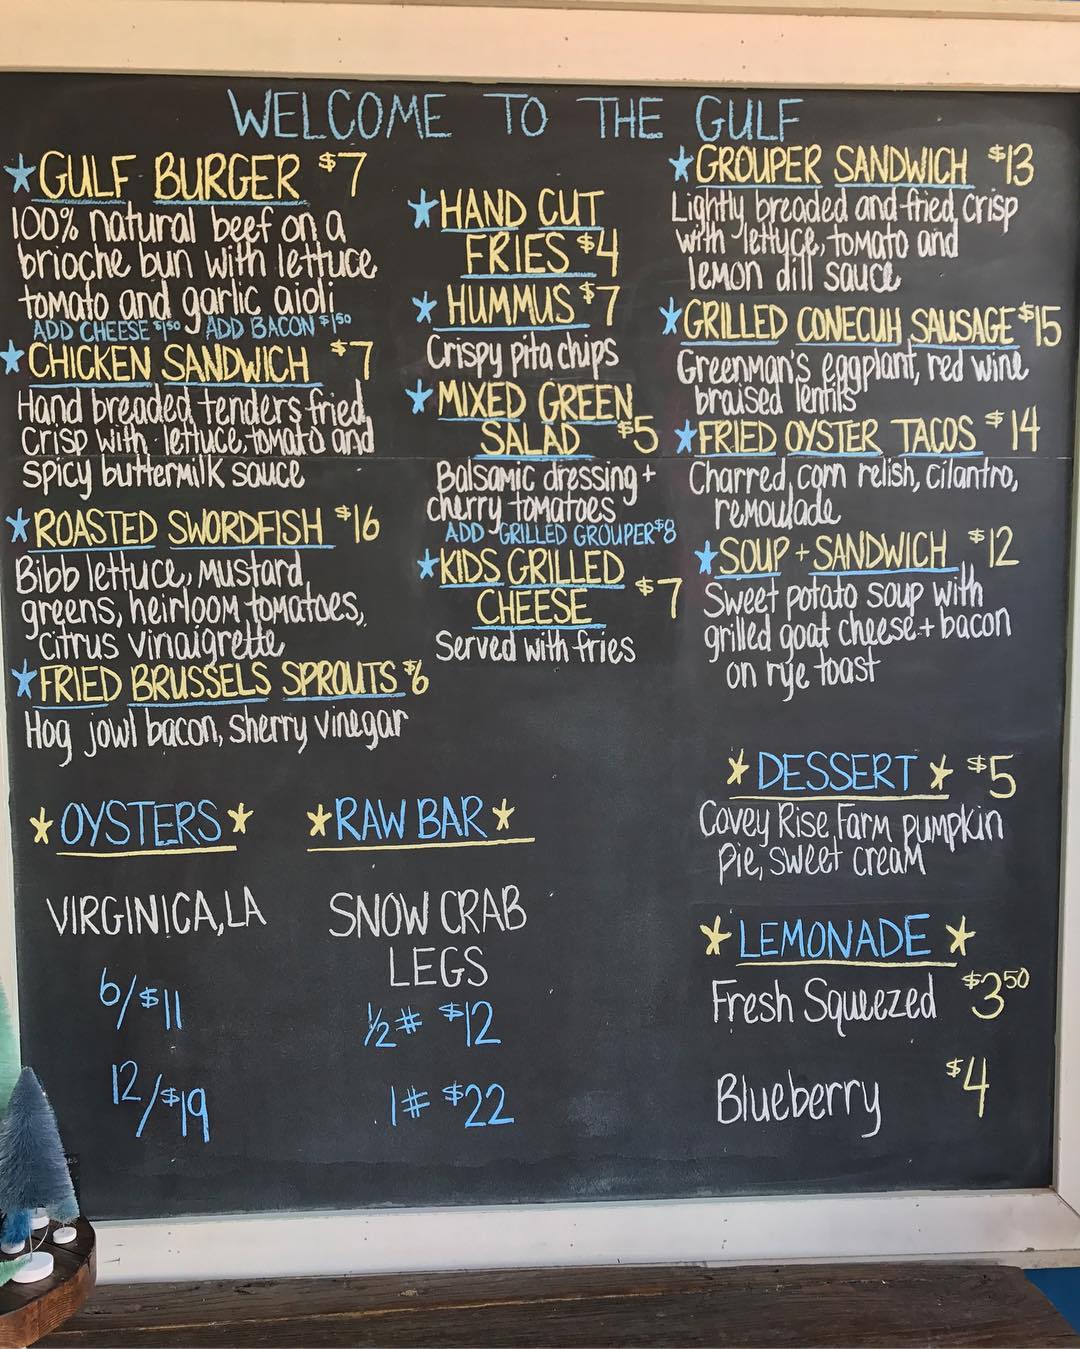 WELCOME TO THE GULF
GULF BURGER $7
100% natural beef on a
brioche bun with lettuce
tomato and garlic aioli
ADD CHEESE $1.50 ADD BACON $1.50
CHICKEN SANDWICH $7
Hand breaded tenders fried
crisp with lettuce, tomato and
spicy buttermilk sauce
ROASTED SWORDFISH $16
Bibb lettuce, mustard
greens, heirloom tomatoes,
citrus vinaigrette
FRIED BRUSSELS SPROUTS $6
Hog jowl bacon, sherry vinegar
HAND CUT
FRIES $4
HUMMUS $7
Crispy pita chips
MIXED GREEN
SALAD $5
Balsamic dressing +
cherry tomatoes
ADD GRILLED GROUPER $8
KIDS GRILLED
CHEESE $7
Served with fries
GROUPER SANDWICH $13
Lightly breaded and fried crisp
with lettuce, tomato and
lemon dill sauce
GRILLED CONECUH SAUSAGE $15
Greenman's eggplant, red wine
braised lentils
FRIED OYSTER TACOS $14
Charred corn relish, cilantro,
remoulade
SOUP + SANDWICH $12
Sweet potato soup with
grilled goat cheese + bacon
on rye toast
OYSTERS
VIRGINICA, LA
6/$11
12/$19
RAW BAR
SNOW CRAB
LEGS
1/2# $12
1# $22
DESSERT $5
Covey Rise Farm pumpkin
pie, sweet cream
LEMONADE
Fresh Squeezed $3.50
Blueberry $4